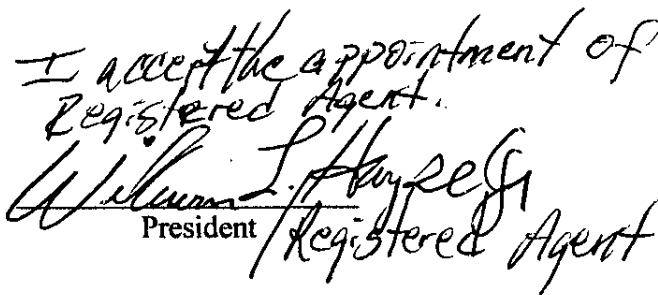 I accept the appointment of
Registered Agent.
William L.
President / Registered Agent